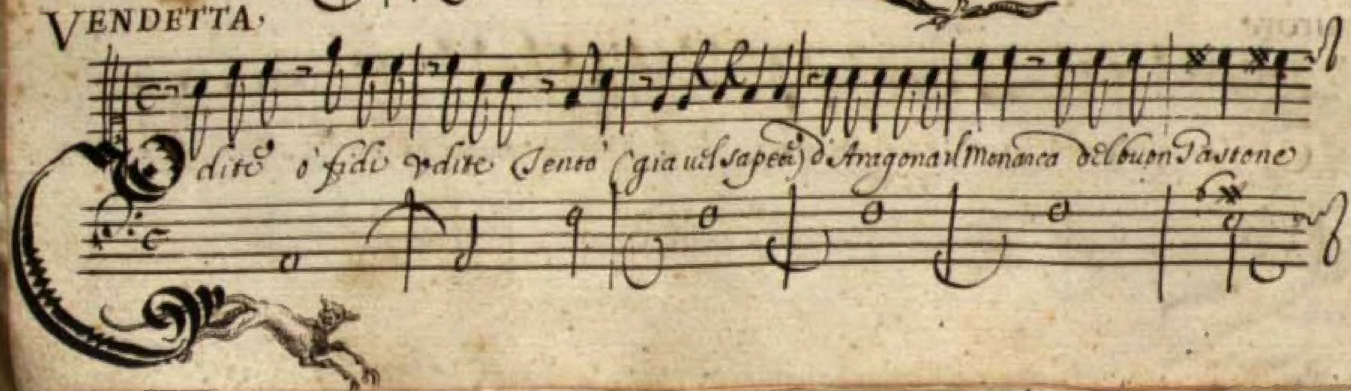 VENDETTA,
Vdite o fidi vdite Tentò (gia uel sapete) d'Aragona il Monarca del buon Gastone